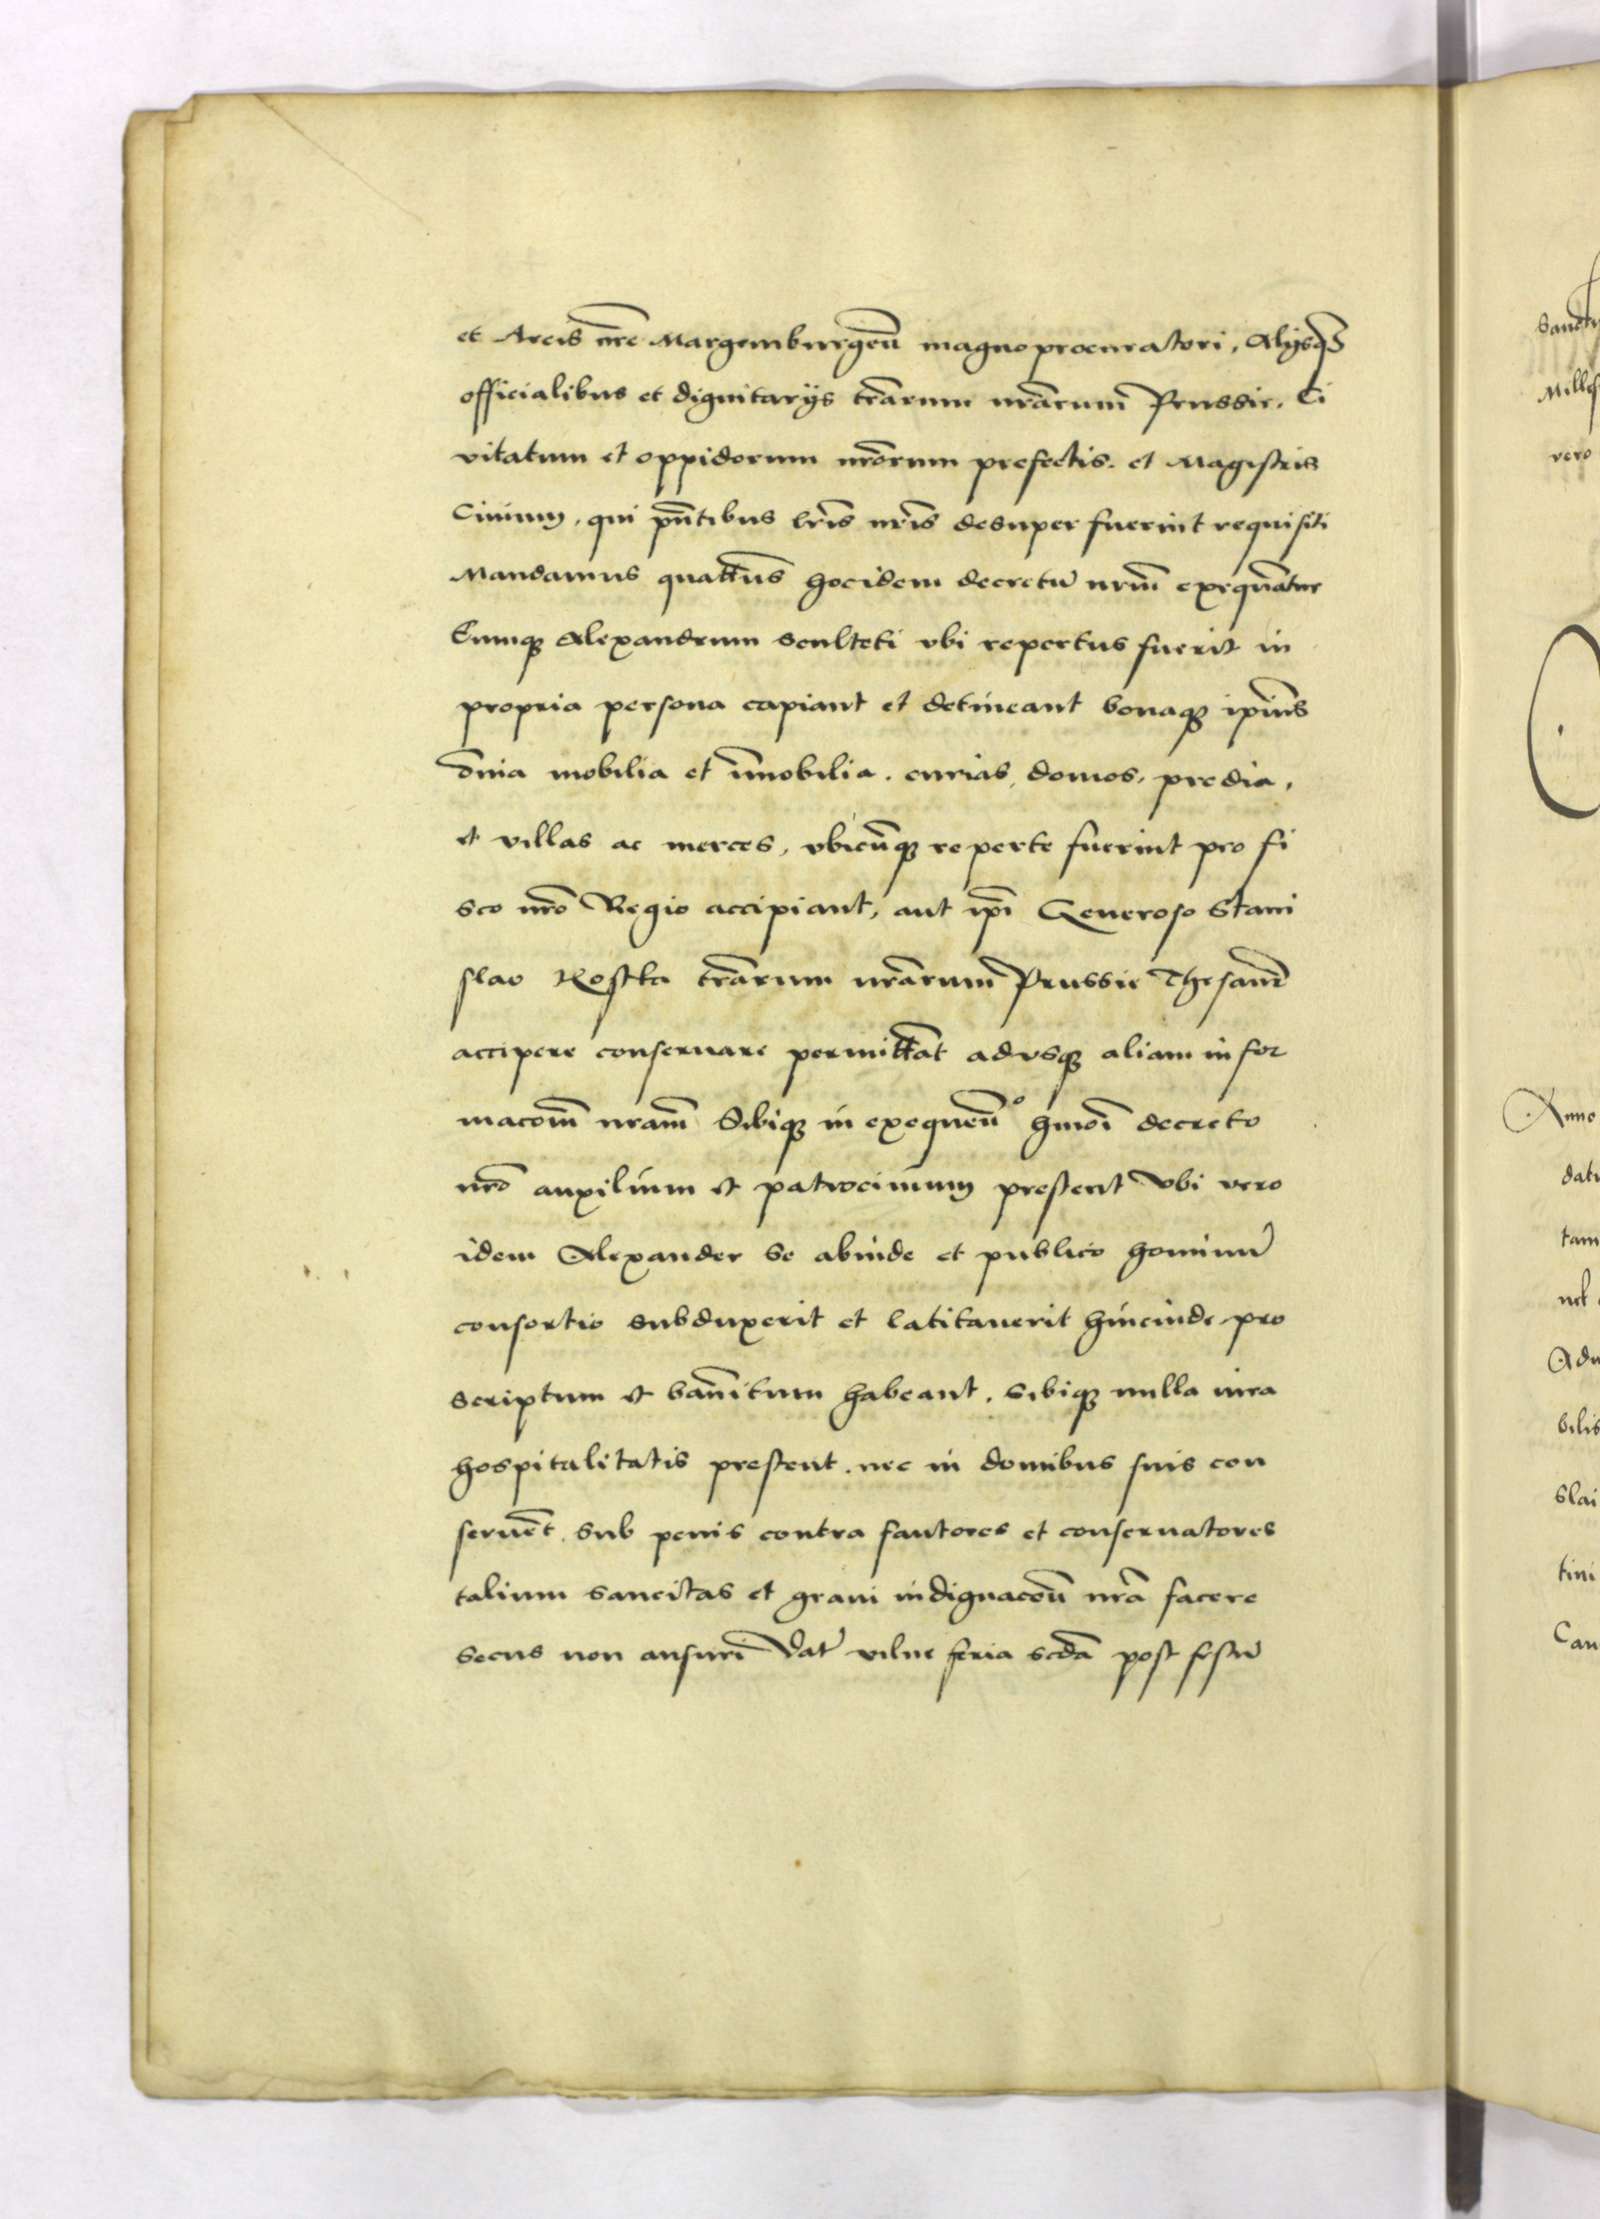 et Arcis nr̄e Margemburgeñ magno procuratori, Alijsq̄3
officialibus et dignitarijs trārum nrārum Prussie. Ci
vitatum et oppidorum nrōrum prefectis. et Magistris
Ciuium, qui pn̄tibus lrīs nrīs desuper fuerint requisiti
Mandamus quatt̄us hocidem decretū nrm̄ exequāntur
Eumqꝫ Alexandrum sculteti vbi repertus fuerit in
propria persona capiant et detineant bonaqꝫ ipīus
om̄ia mobilia et im̄obilia. curias, domos, predia,
et villas ac merces, vbicūnqꝫ reperte fuerint pro fi
sco nrō Regio accipiant, aut ipī Generoso Stani
slao Kostka trārum nrārum Prussie Thesaur̄
accipere conseruare permittāt advsqꝫ aliam infor
macōm̄ nram̄ Sibiqꝫ in exequeñº hmōi decreto
nrō auxilium et patrocinium prestent Vbi vero
idem Alexander se abinde et publico hominū
consortio subduxerit et latitauerit hincinde pro
scriptum et ban̄itum habeant. Sibiqꝫ nulla iura
hospitalitatis prestent. nec in domibus suis con
seruēt. Sub penis contra fautores et conseruatores
talium sancitas et graui indignacōn̄ nrā facere
secus non ausuri Dat̄ vilne feria scdā post festū
Sanct
Milles
vero
Anno
datu
tam
Adu
bilis
slai
tini
Can